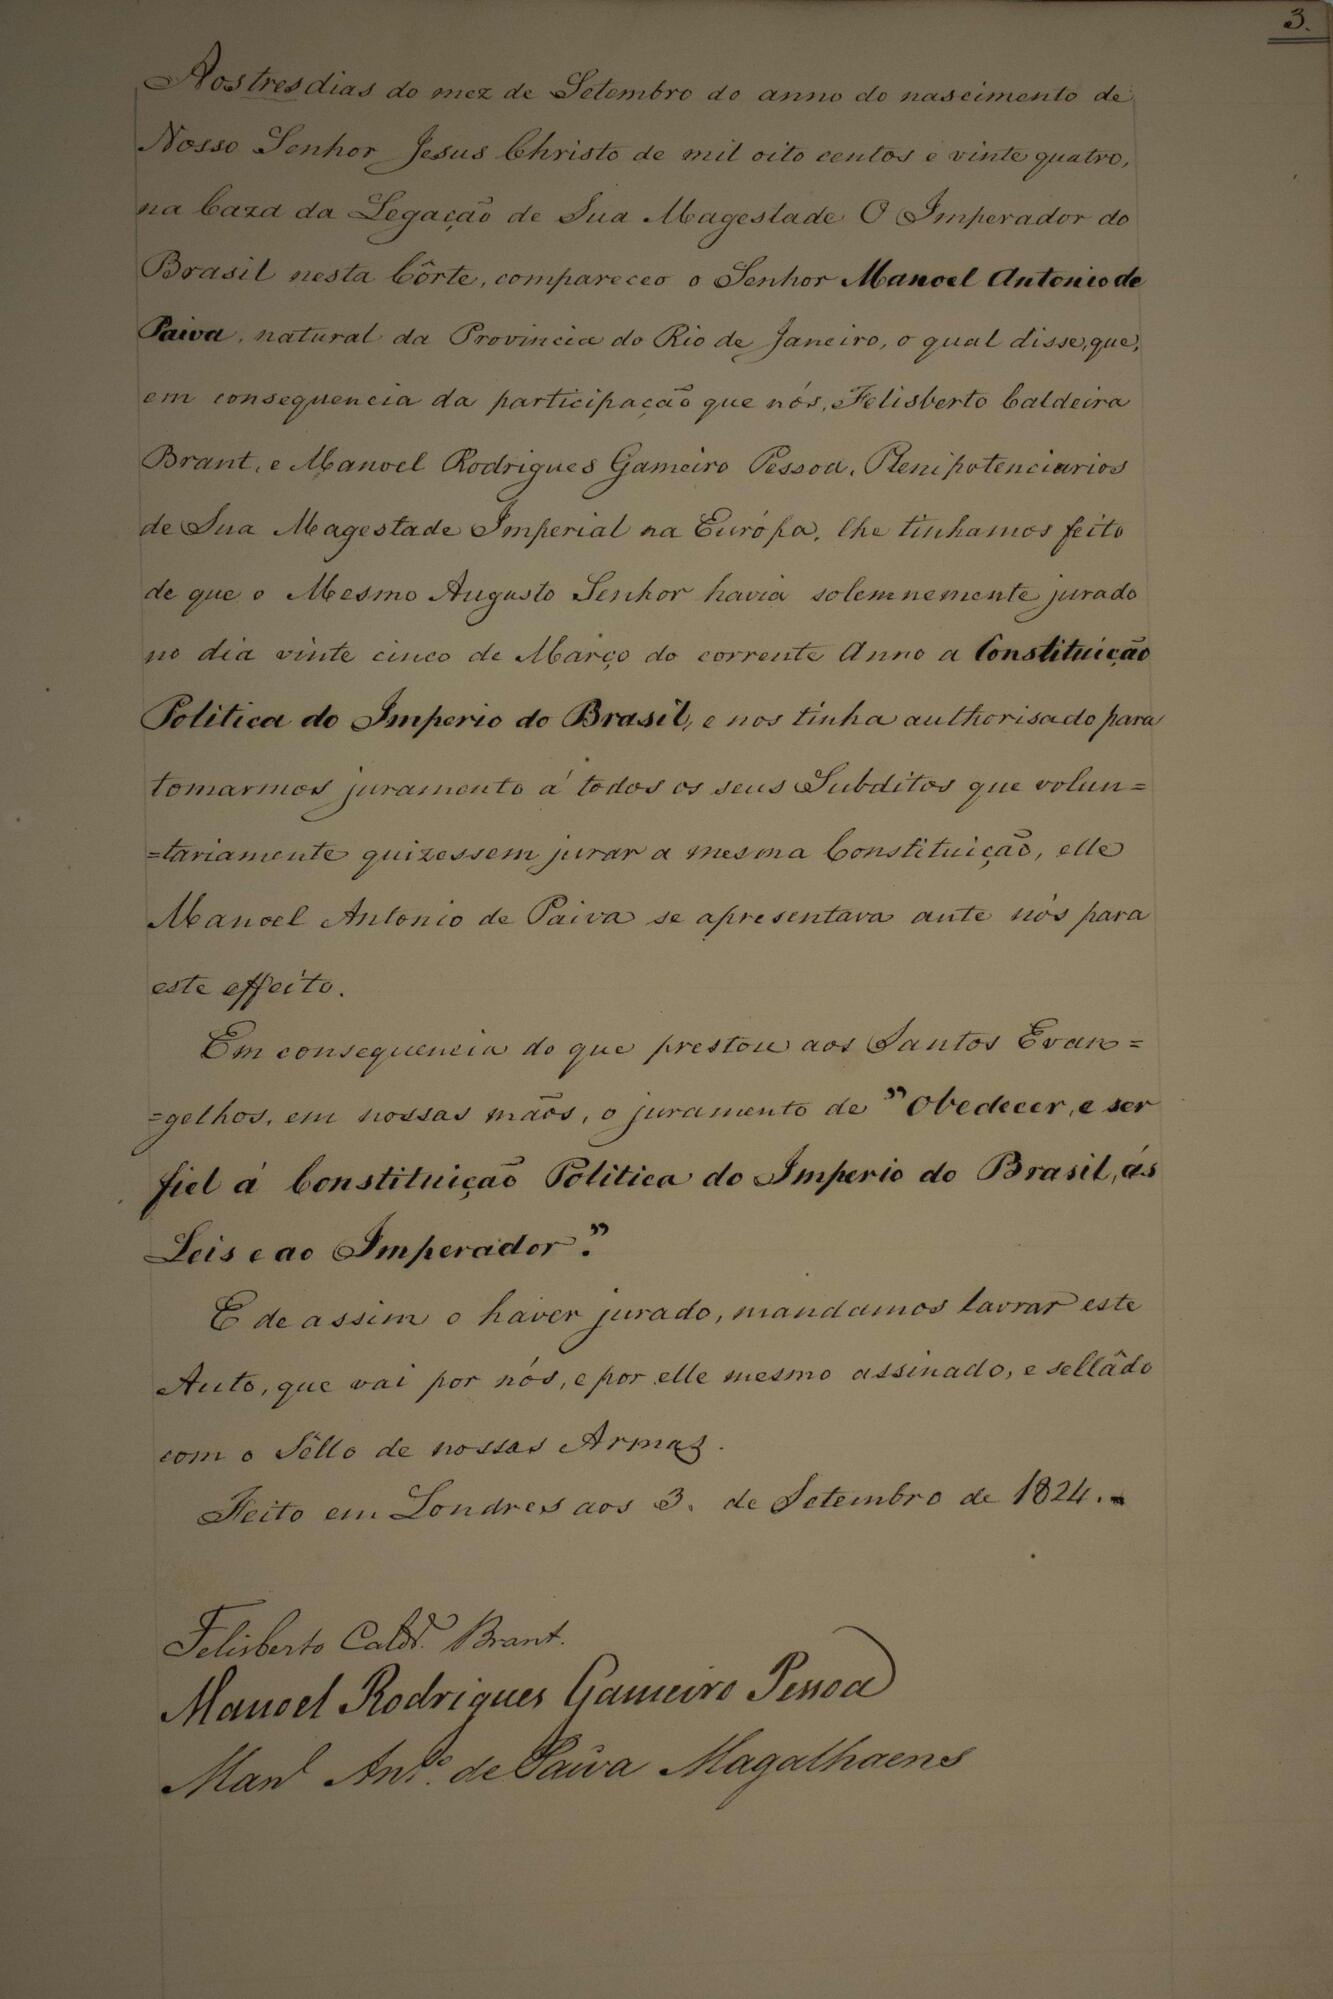 3.
Aos tres dias do mez de Setembro do anno do nascimento de
Nosso Senhor Jesus Christo de mil oito centos e vinte quatro,
na Caza da Legação de Sua Magestade O Imperador do
Brasil nesta Côrte, compareceo o Senhor Manoel Antonio de
Paiva, natural da Provincia do Rio de Janeiro, o qual disse, que,
em consequencia da participação que nós, Felisberto Caldeira
Brant, e Manoel Rodrigues Gameiro Pessoa, Plenipotenciarios
de Sua Magestade Imperial na Európa, lhe tinhamos feito
de que o Mesmo Augusto Senhor havia solemnemente jurado
no dia vinte cinco de Março do corrente Anno a Constituição
Politica do Imperio do Brasil, e nos tinha authorisado para
tomarmos juramento á todos os seus Subditos que volun=
=tariamente quizessem jurar a mesma Constituição, elle
Manoel Antonio de Paiva se apresentava ante nós para
este effeito.
Em consequencia do que prestou aos Santos Evan=
=gelhos, em nossas mãos, o juramento de "Obedecer, e ser
fiel á Constituição Politica do Imperio do Brasil, ás
Leis e ao Imperador."
E de assim o haver jurado, mandamos lavrar este
Auto, que vai por nós, e por elle mesmo assinado, e sellâdo
com o Sêllo de nossas Armas.
Feito em Londres aos 3. de Setembro de 1824.
Felisberto Caldr.ª Brant.
Manoel Rodrigues Gameiro Pessoa
Man.l Ant.º de Paiva Magalhaens